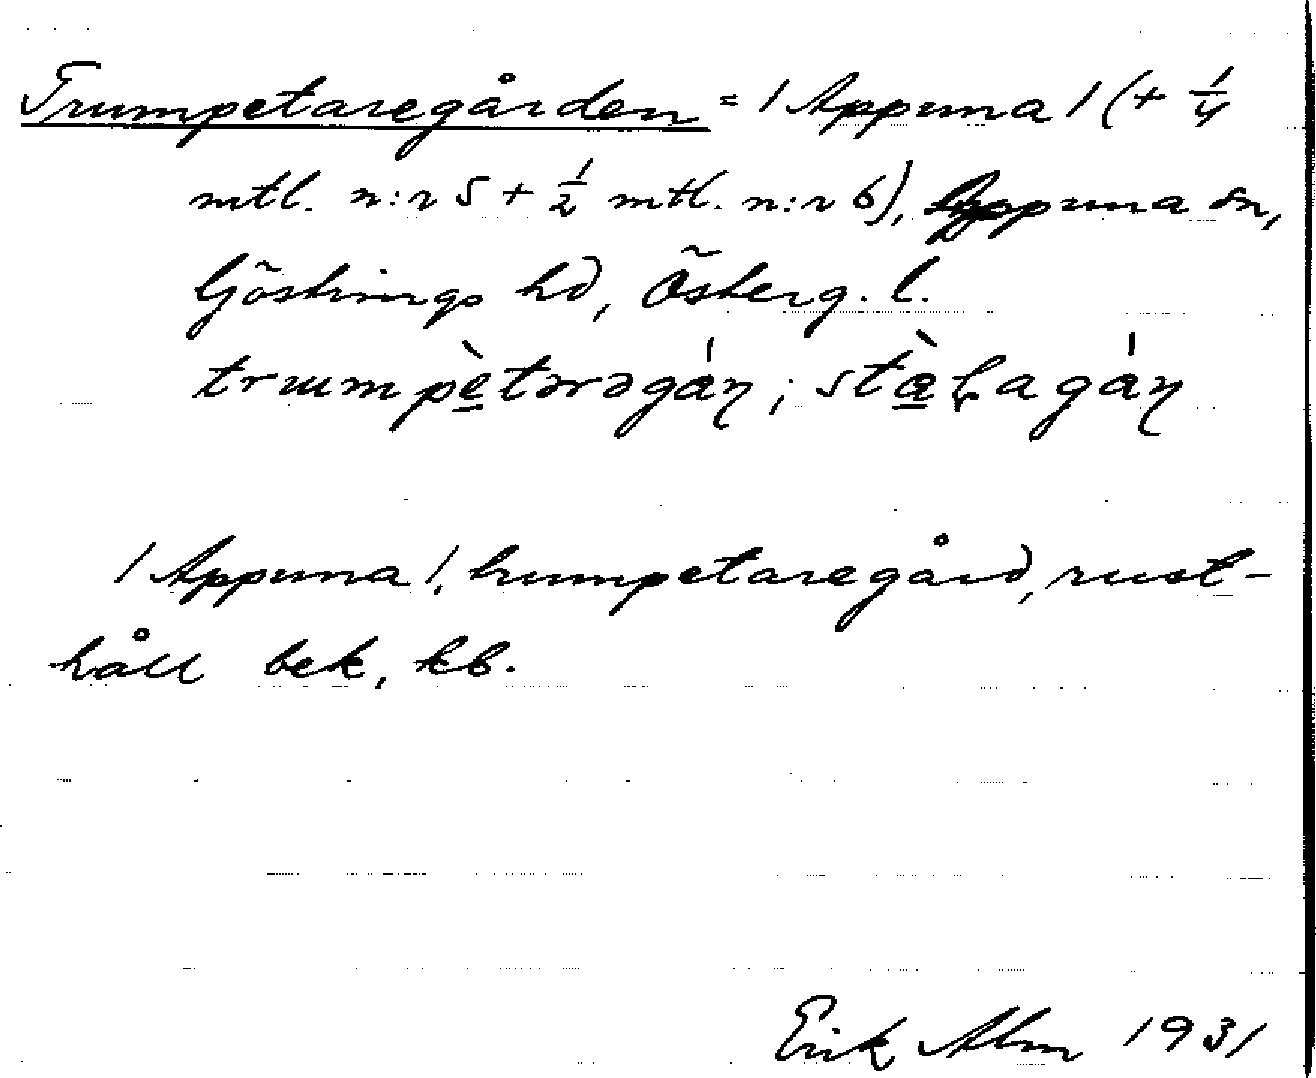 Trumpetaregården = 1 Appuna 1 (+ 1/4
mtl. n:r 5 + 1/2 mtl. n:r 6), Appuna sn,
Göstrings hd, Österg. l.
trumpètərəgán; stàḷagán
1 Appuna 1, trumpetaregård, rust-
håll bek, kb.
Erik Alm 1931